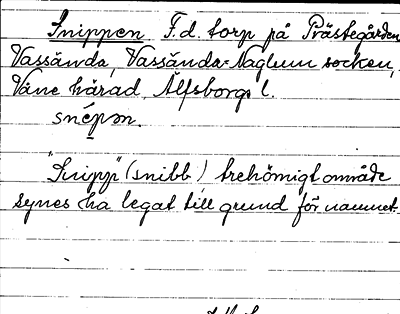 Snippen F.d. torp på Prästegården
Vassända, Vassända-Naglum socken,
Väne härad, Älfsborgs l.
snépɔn.
"Snipp" (snibb) trehörnigt område
synes ha legat till grund för namnet.